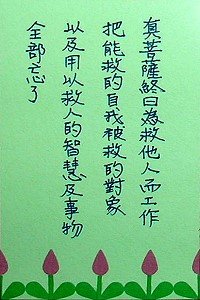 真菩薩終日為救他人而工作
把能救的自我被救的對象
以及用以救人的智慧及事物
全部忘了